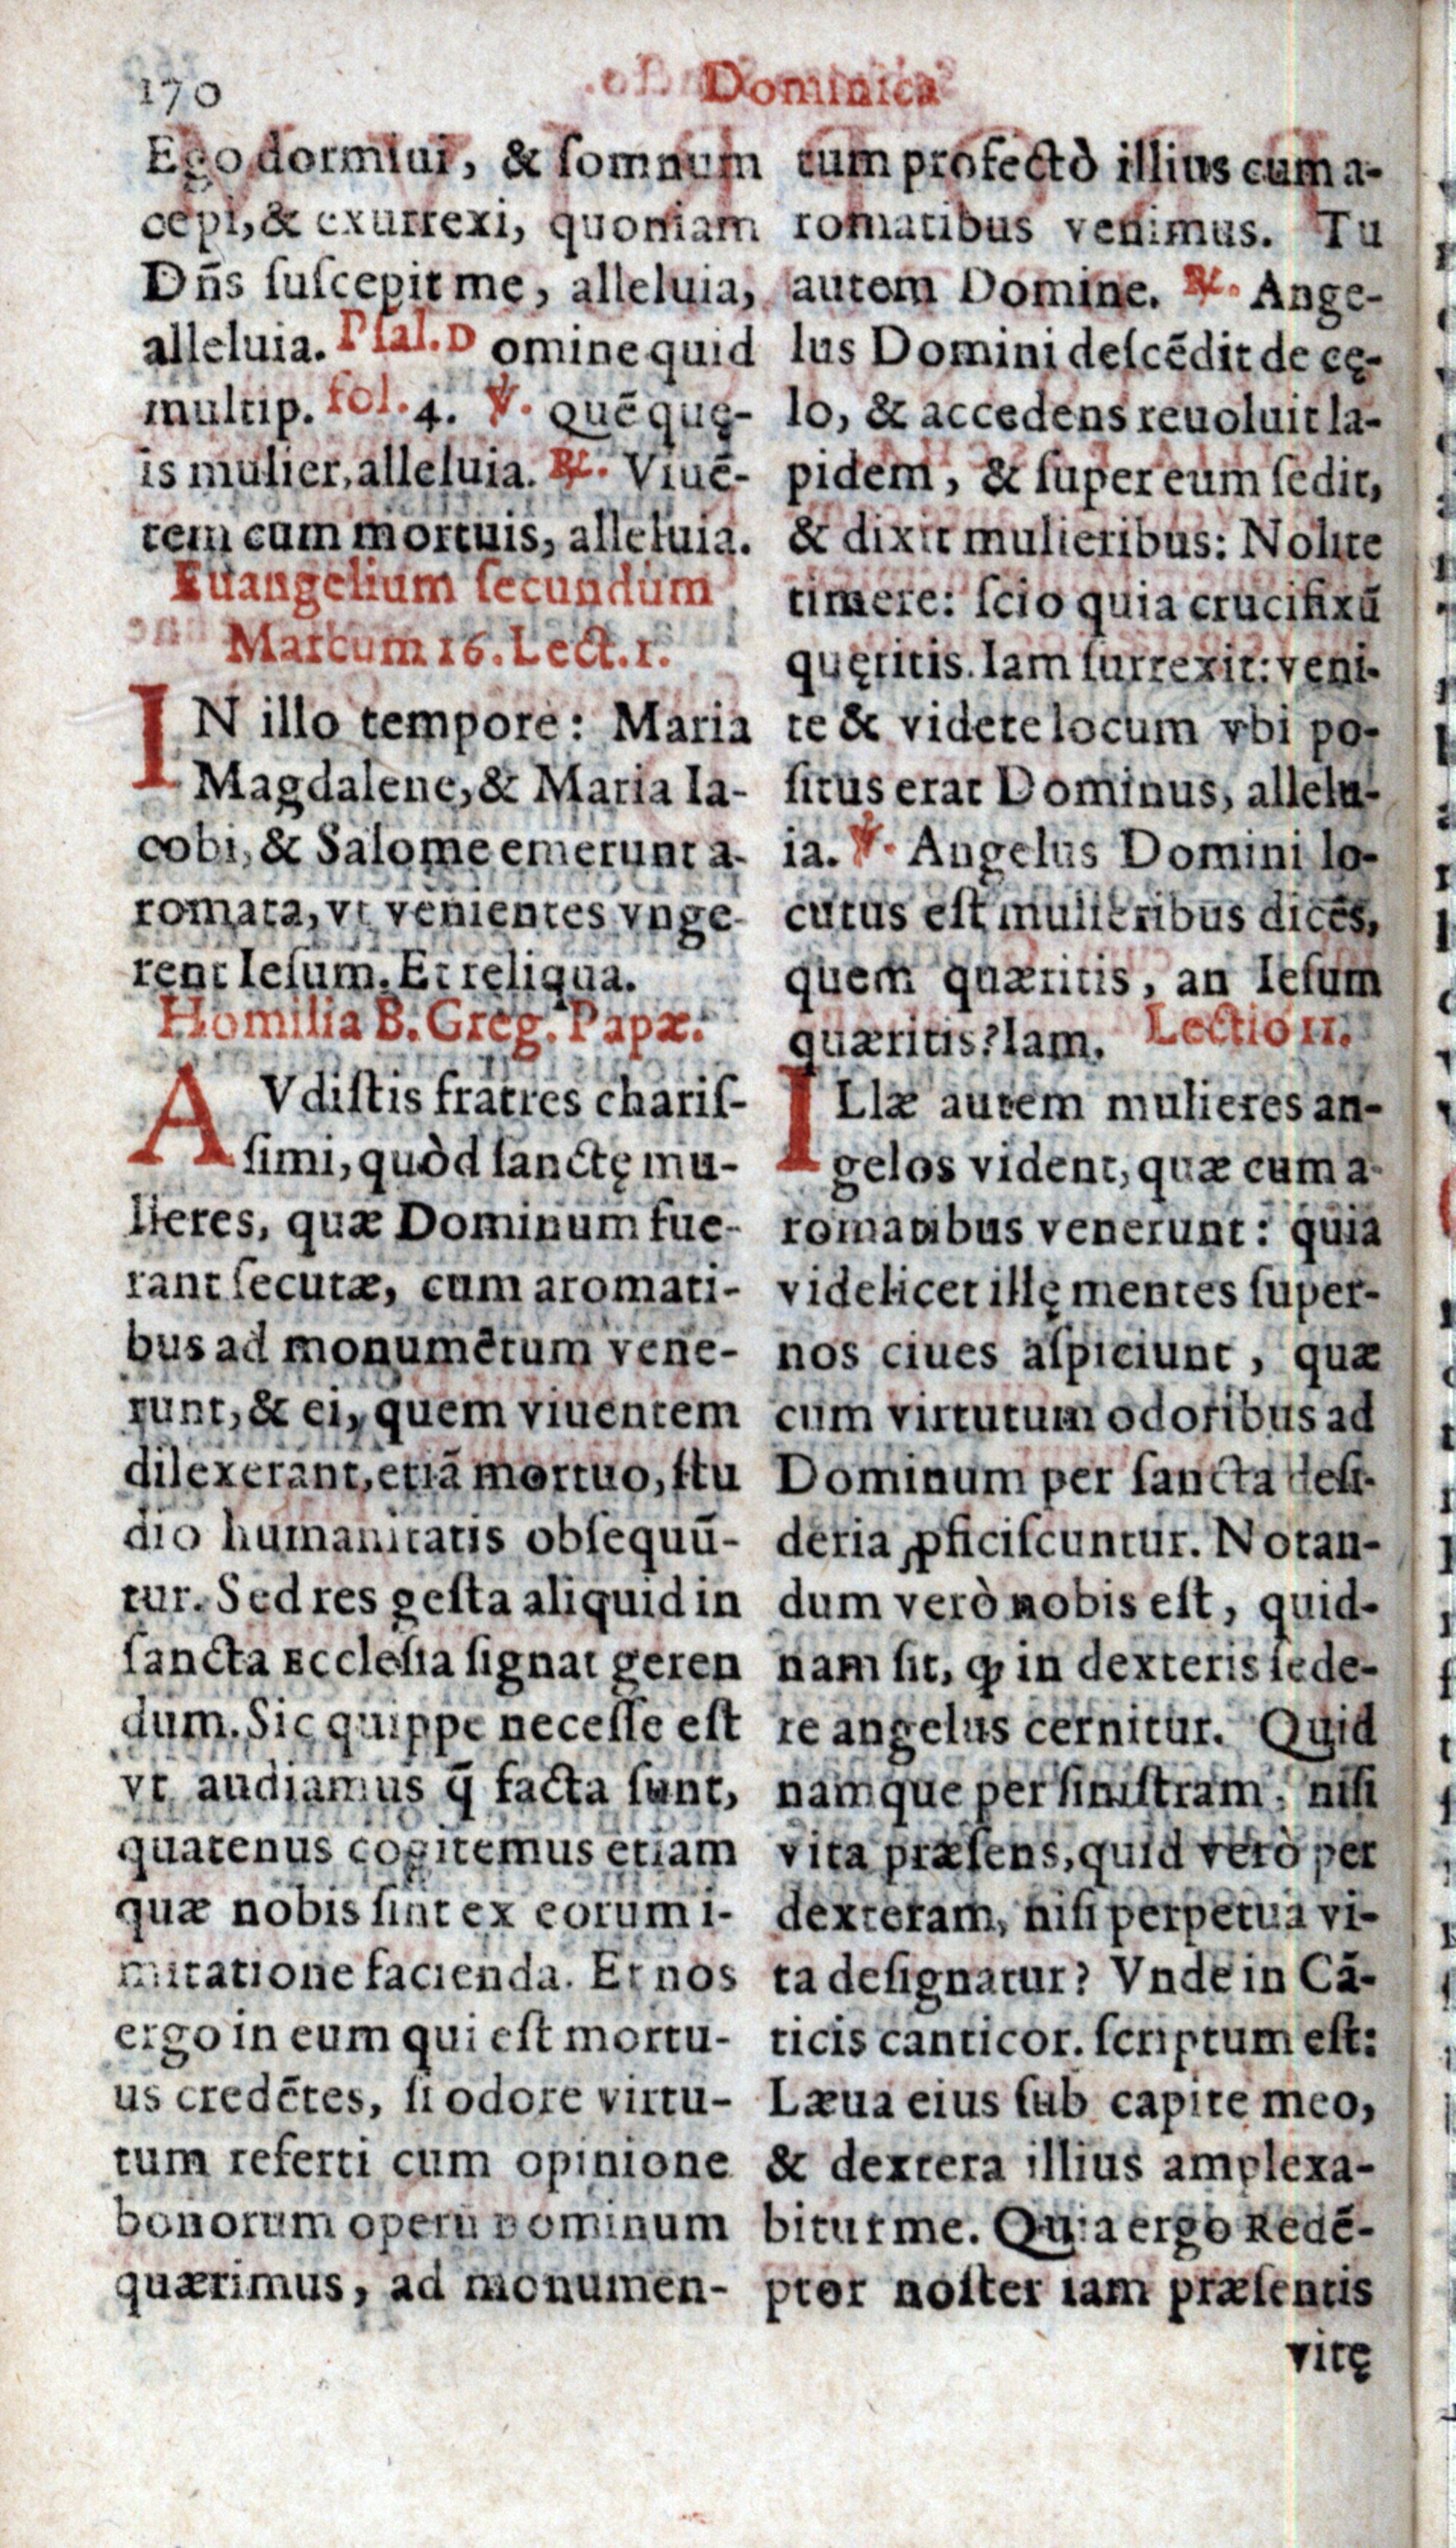 170
Dominica
Ego dormiui, & ſomnum
cepi, & exurrexi, quoniam
Dñs ſuſcepit me, alleluia,
alleluia. Pſal. Domine quid
multip. fol. 4. ℣. Quē quę-
is mulier, alleluia. ℟. Viuē-
tem cum mortuis, alleluia.
Euangelium ſecundùm
Marcum 16. Lect. 1.
IN illo tempore: Maria
Magdalene, & Maria Ia-
cobi, & Salome emerunt a-
romata, vt venientes vnge-
rent Ieſum. Et reliqua.
Homilia B. Greg. Papæ.
AVdiſtis fratres chariſ-
ſimi, quòd ſanctę mu-
lieres, quæ Dominum fue-
rant ſecutæ, cum aromati-
bus ad monumētum vene-
runt, & ei, quem viuentem
dilexerant, etiā mortuo, ſtu
dio humanitatis obſequū-
tur. Sed res geſta aliquid in
ſancta Eccleſia ſignat geren
dum. Sic quippe neceſſe eſt
vt audiamus q̄ facta ſunt,
quatenus cogitemus etiam
quæ nobis ſint ex eorum i-
mitatione facienda. Et nos
ergo in eum qui eſt mortu-
us credētes, ſi odore virtu-
tum referti cum opinione
bonorum operū Dominum
quærimus, ad monumen-
tum profectò illius cum a-
romatibus venimus. Tu
autem Domine. ℟. Ange-
lus Domini deſcēdit de cę-
lo, & accedens reuoluit la-
pidem, & ſuper eum ſedit,
& dixit mulieribus: Nolite
timere: ſcio quia crucifixū
quęritis. Iam ſurrexit: veni-
te & videte locum vbi po-
ſitus erat Dominus, allelu-
ia. ℣. Angelus Domini lo-
cutus eſt mulieribus dicēs,
quem quæritis, an Ieſum
quæritis? Iam. Lectio II.
ILlæ autem mulieres an-
gelos vident, quæ cum a-
romatibus venerunt: quia
videlicet illę mentes ſuper-
nos ciues aſpiciunt, quæ
cum virtutum odoribus ad
Dominum per ſancta deſi-
deria ꝓficiſcuntur. Notan-
dum verò nobis eſt, quid-
nam ſit, ꝙ in dexteris ſede-
re angelus cernitur. Quid
namque per ſiniſtram, niſi
vita præſens, quid verò per
dexteram, niſi perpetua vi-
ta deſignatur? Vnde in Cā-
ticis canticor. ſcriptum eſt:
Læua eius ſub capite meo,
& dextera illius amplexa-
bitur me. Quia ergo Redē-
ptor noſter iam præſentis
vitę